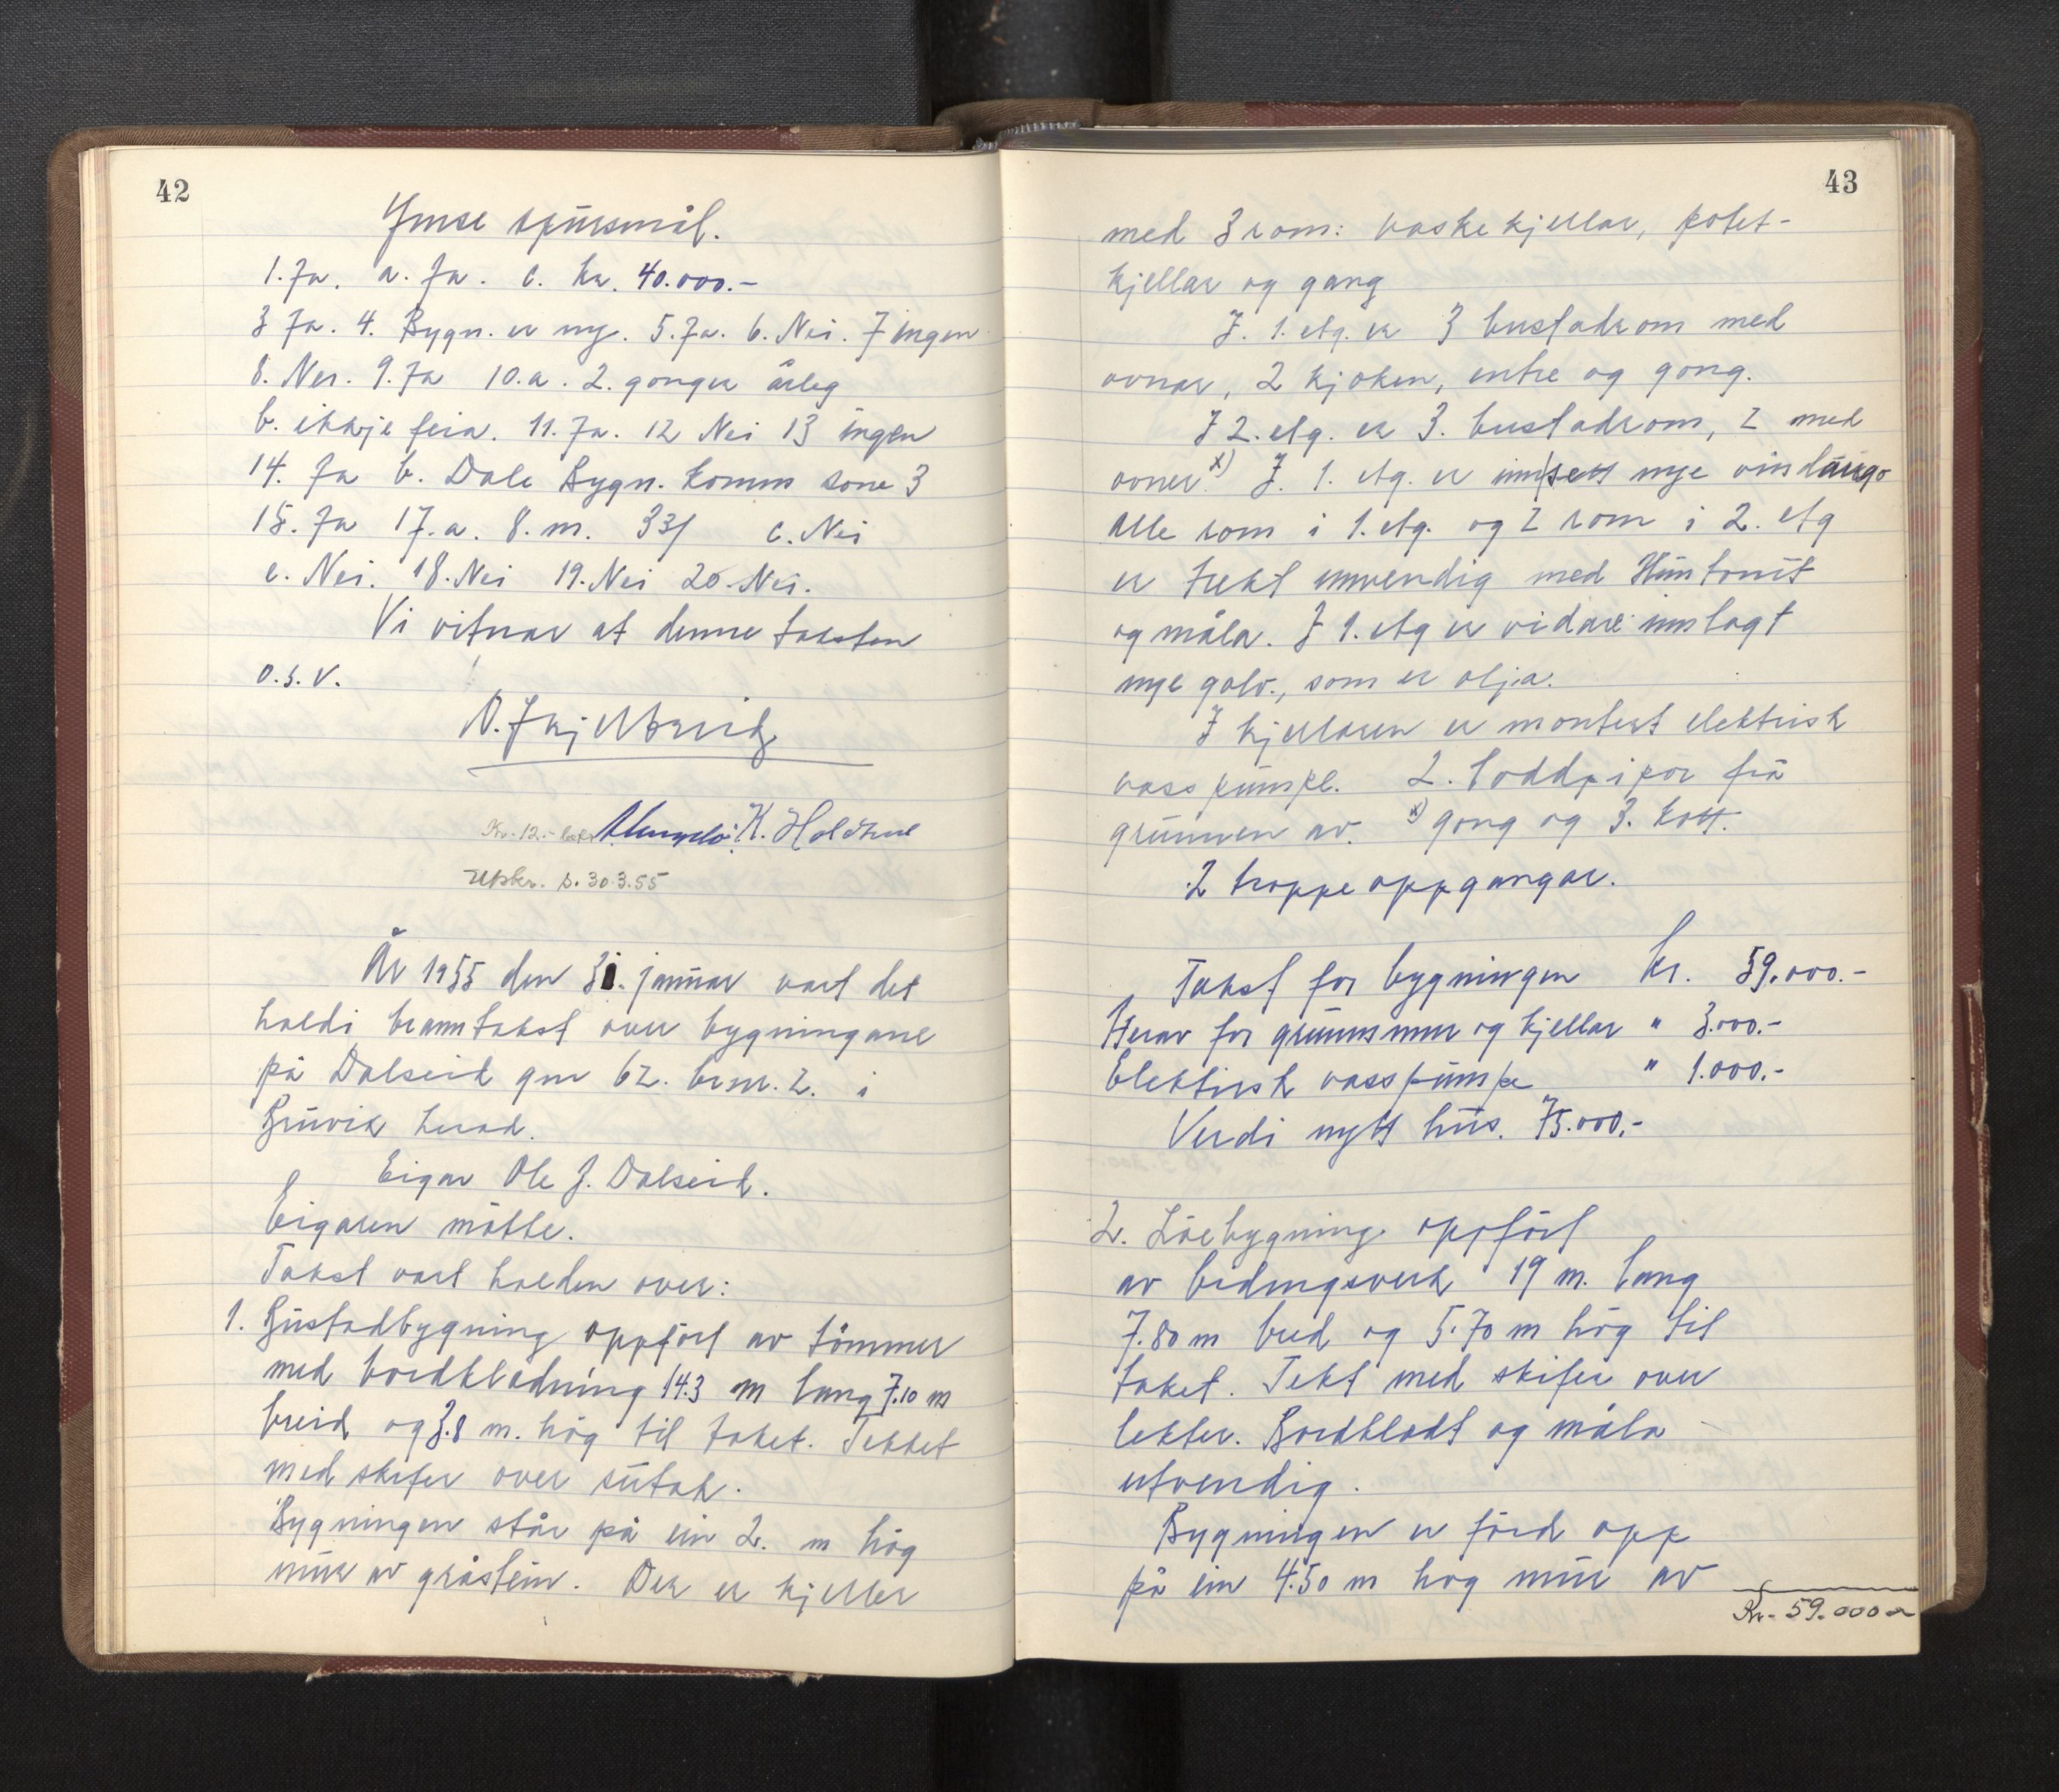 42
Ymse spursmål.
1. Ja. a. Ja. c. kr. 40.000.-
3 Ja. 4. Bygn. er ny. 5. Ja. 6. Nei. 7 ingen
8. Nei. 9. Ja 10. a. 2. gonger årleg
b. ikkje feia. 11. Ja. 12 Nei 13 ingen
14. Ja b. Dale Bygn. komm sone 3
15. Ja 17. a. 8. m. 33/ c. Nei
e. Nei. 18. Nei 19. Nei 20. Nei.
Vi vitnar at denne taksten
o.s.v.
Kr. 12.- K. Holdhus
Utskr. s. 30.3.55
År 1955 den 31. januar vart det
haldi branntakst over bygningane
på Dalseid gnr 62. brnr. 2. i
Bruvik herad.
Eigar Ole J. Dalseid.
Eigaren møtte.
Takst vart halden over:
1. Bustadbygning oppført av tømmer
med bordkledning 14.3 m lang 7.10 m
breid og 3.8 m. høg til taket. Tekket
med skifer over sutak.
Bygningen står på ein 2. m høg
mur av gråstein. Der er kjeller
43
med 3 rom: vaskekjellar, potet-
kjellar og gang
I. 1. etg. er 3 bustadrom med
ovnar, 2 kjøken, entre og gong.
I 2. etg. er 3. bustadrom, 2 med
ovner. x) I. 1. etg. er innsett nye vindaugo
Alle rom i 1. etg. og 2 rom i 2. etg
er trekt innvendig med Huntonit
og måla. I 1. etg er vidare innlagt
nye golv., som er olja.
I kjellaren er montert elektrisk
vasspumpe. 2. loddpipor frå
grunnen av. x) gong og 3. kott.
2 troppeoppgangar.
Takst for bygningen kr. 59.000.-
Herav for grunnmur og kjellar " 3.000.-
Elektrisk vasspumpe " 1.000.-
Verdi nytt hus. 75.000.-
2. Løebygning oppført
av bidingsverk 19 m. lang
7.80 m breid og 5.70 m høg til
taket. Tekt med skifer over
lekter. Bordkledt og måla
utvendig.
Bygningen er førd opp
på ein 4.50 m høg mur av
Kr. 59.000.-